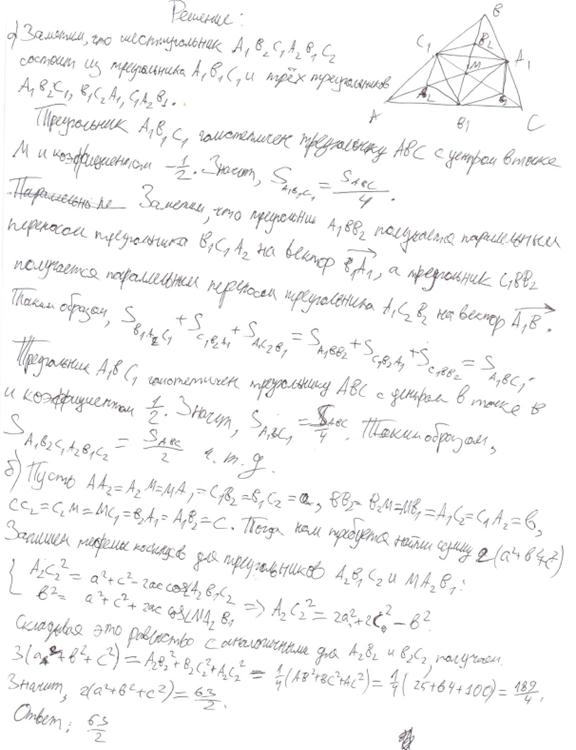 Решение:
а) Заметим, что шестиугольник A₁B₂C₁A₂B₁C₂
состоит из треугольника A₁B₁C₁ и трёх треугольников
A₁B₂C₁, B₁C₂A₁, C₁A₂B₁.
Треугольник A₁B₁C₁ гомотетичен треугольнику ABC с центром в точке
M и коэффициентом -1/2. Значит, S_{A₁B₁C₁} = S_{ABC}/4.
Заметим, что треугольник A₁BB₂ получается параллельным
переносом треугольника B₁C₁A₂ на вектор B₁A₁, а треугольник C₁BB₂
получается параллельным переносом треугольника A₁C₂B₁ на вектор A₁B.
Таким образом, S_{B₁A₂C₁} + S_{C₁B₂A₁} + S_{A₁C₂B₁} = S_{A₁BB₂} + S_{C₁B₂A₁} + S_{C₁BB₂} = S_{A₁BC₁}.
Треугольник A₁BC₁ гомотетичен треугольнику ABC с центром в точке B
и коэффициентом 1/2. Значит, S_{A₁BC₁} = S_{ABC}/4. Таким образом,
S_{A₁B₂C₁A₂B₁C₂} = S_{ABC}/2 ч.т.д.
б) Пусть AA₂=A₂M=MA₁=C₁B₂=B₁C₂=a, BB₂=B₂M=MB₁=A₁C₂=C₁A₂=b,
CC₂=C₂M=MC₁=B₂A₁=A₂B₁=c. Тогда нам требуется найти сумму 2(a²+b²+c²)
Запишем теоремы косинусов для треугольников A₂B₁C₂ и MA₂B₁:
{ A₂C₂² = a²+c²-2ac cos∠A₂B₁C₂
b² = a²+c²+2ac cos∠MA₂B₁ => A₂C₂² = 2a²+2c²-b².
Складывая это равенство с аналогичными для A₂B₂ и B₂C₂, получаем
3(a²+b²+c²) = A₂B₂²+B₂C₂²+A₂C₂² = 1/4(AB²+BC²+AC²) = 1/4(25+64+100) = 189/4.
Значит, 2(a²+b²+c²) = 63/2.
Ответ: 63/2
B
C₁
B₂
A₁
M
A
A₂
B₁
C